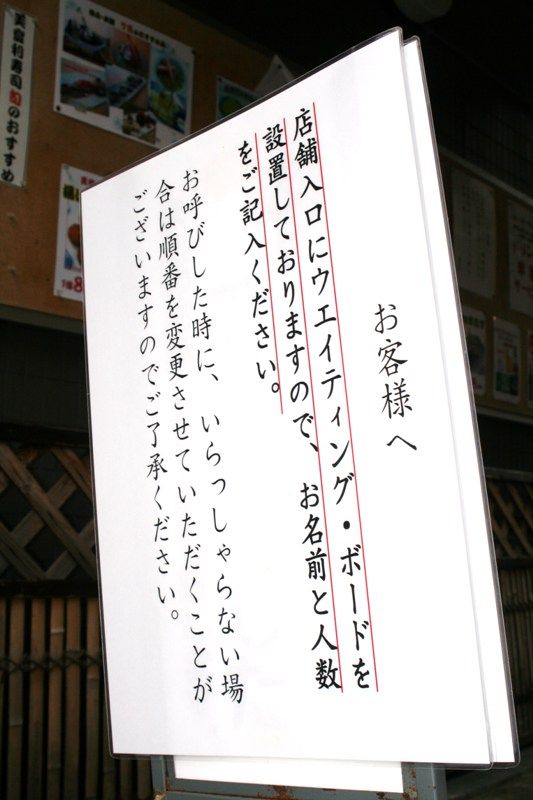 お客様へ
店舗入口にウエイティング・ボードを
設置しておりますので、お名前と人数
をご記入ください。
お呼びした時に、いらっしゃらない場
合は順番を変更させていただくことが
ございますのでご了承ください。